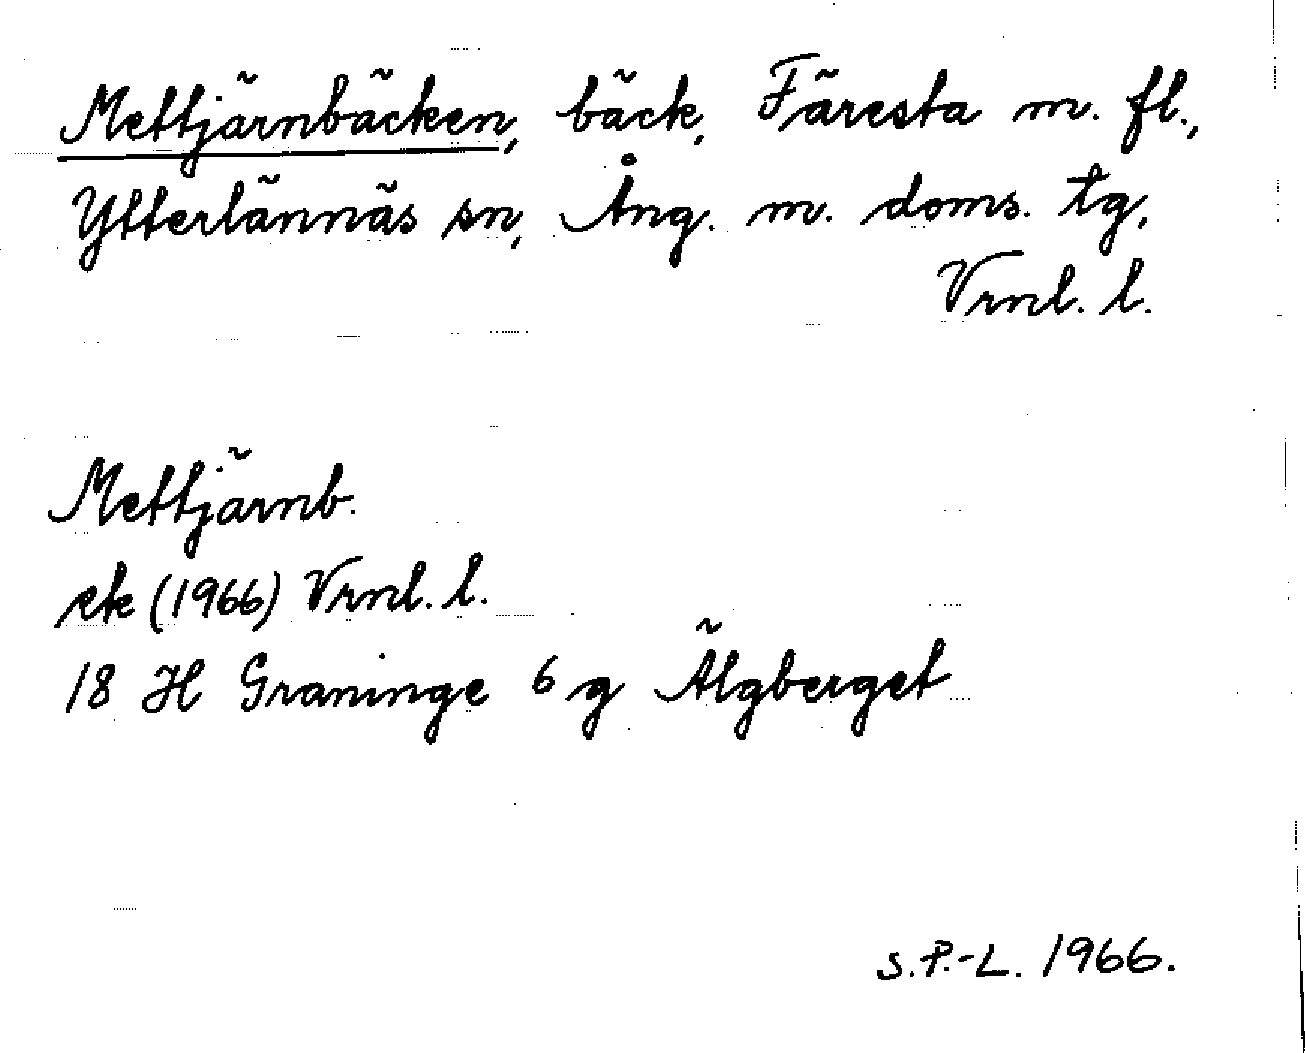 Mettjärnbäcken, bäck, Färesta m. fl.,
Ytterlännäs sn, Ång. m. doms. tg,
Vrml. l.
Mettjärnb.
ek (1966) Vrml. l.
18 H Graninge 6 g Älgberget
S.P.-L. 1966.